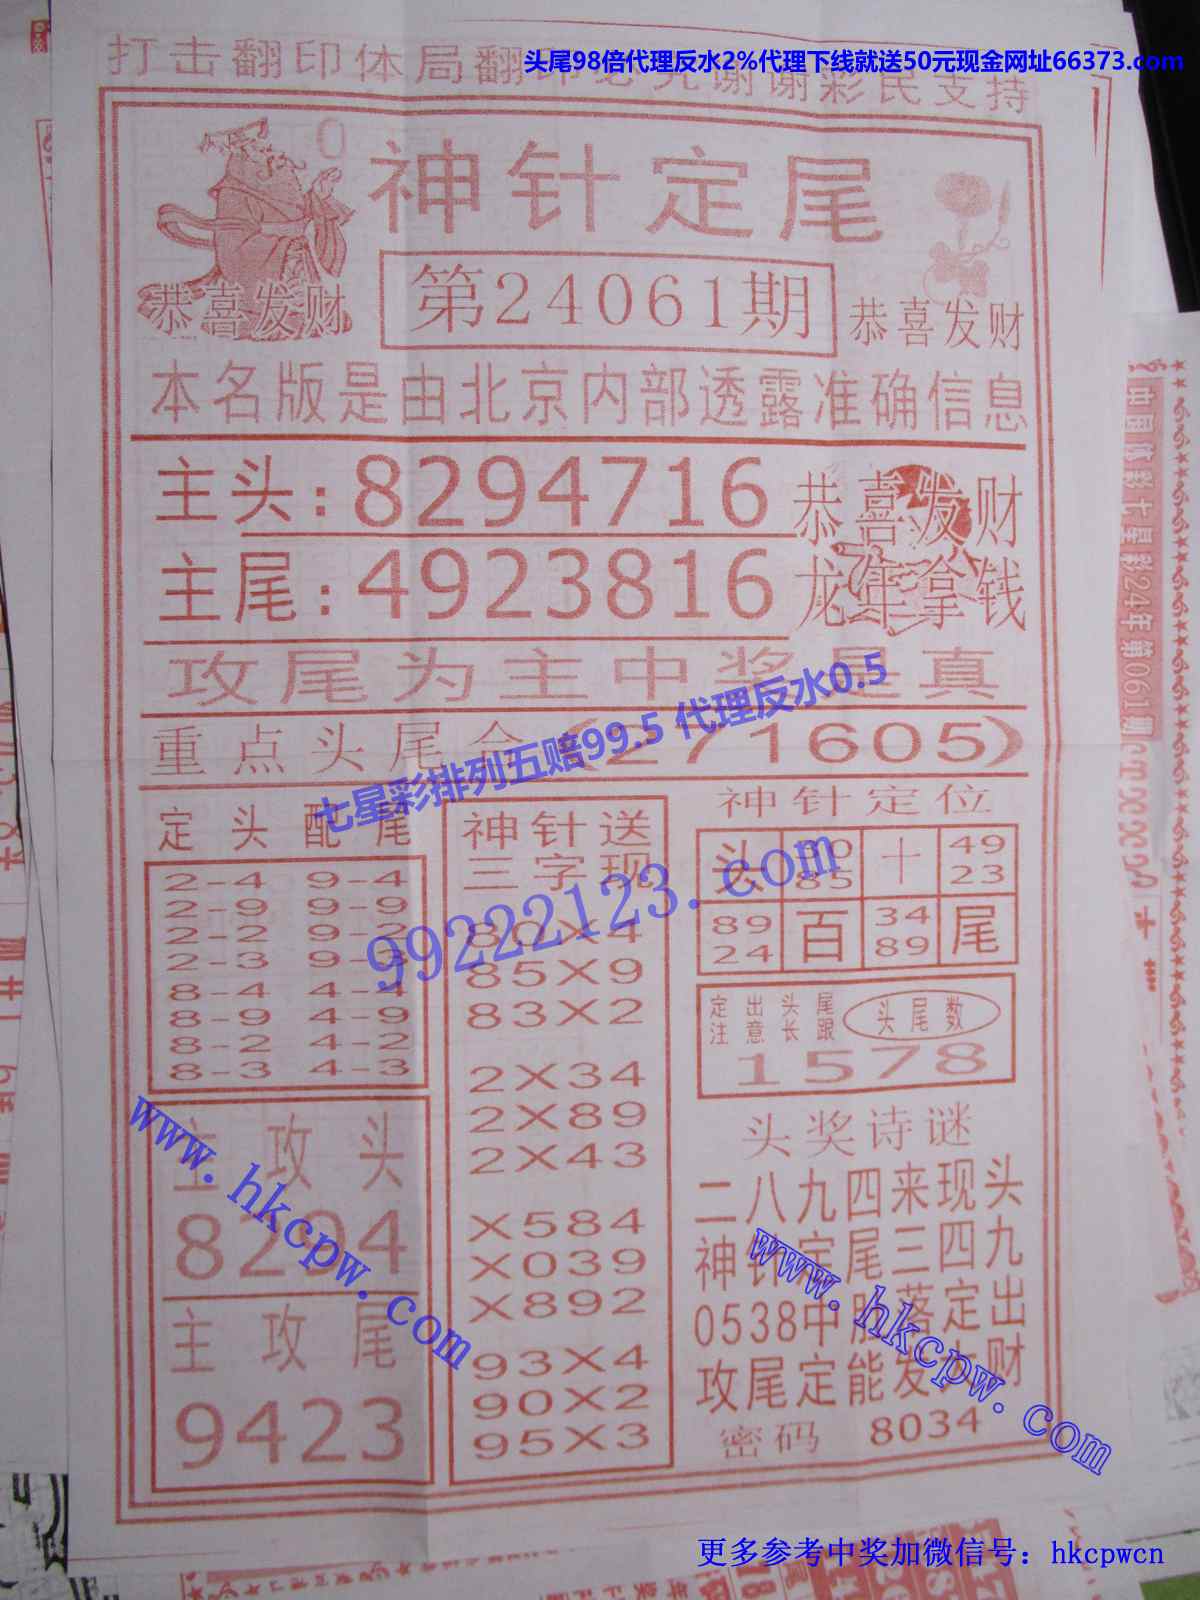 头尾98倍代理反水2%代理下线就送50元现金网址66373.com
打击翻印体局翻印必究谢谢彩民支持
神针定尾
第24061期
恭喜发财
恭喜发财
本名版是由北京内部透露准确信息
主头:8294716
恭喜发财
主尾:4923816
龙年拿钱
攻尾为主中奖是真
重点头尾合(271605)
七星彩排列五赔99.5 代理反水0.5
99222123.com
定头配尾
2-4 9-4
2-9 9-9
2-2 9-2
2-3 9-3
8-4 4-4
8-9 4-9
8-2 4-2
8-3 4-3
主攻头
8294
主攻尾
9423
神针送
三字现
80X4
85X9
83X2
2X34
2X89
2X43
X584
X039
X892
93X4
90X2
95X3
神针定位
头 十 49
85 23
89 百 34 尾
24 89
定出头尾 头尾数
注意长跟
1578
头奖诗谜
二八九四来现头
神针定尾三四九
0538中胆落定出
攻尾定能发大财
密码 8034
www.hkcpw.com
www.hkcpw.com
中国体彩七星彩24年第061期
更多参考中奖加微信号：hkcpwcn